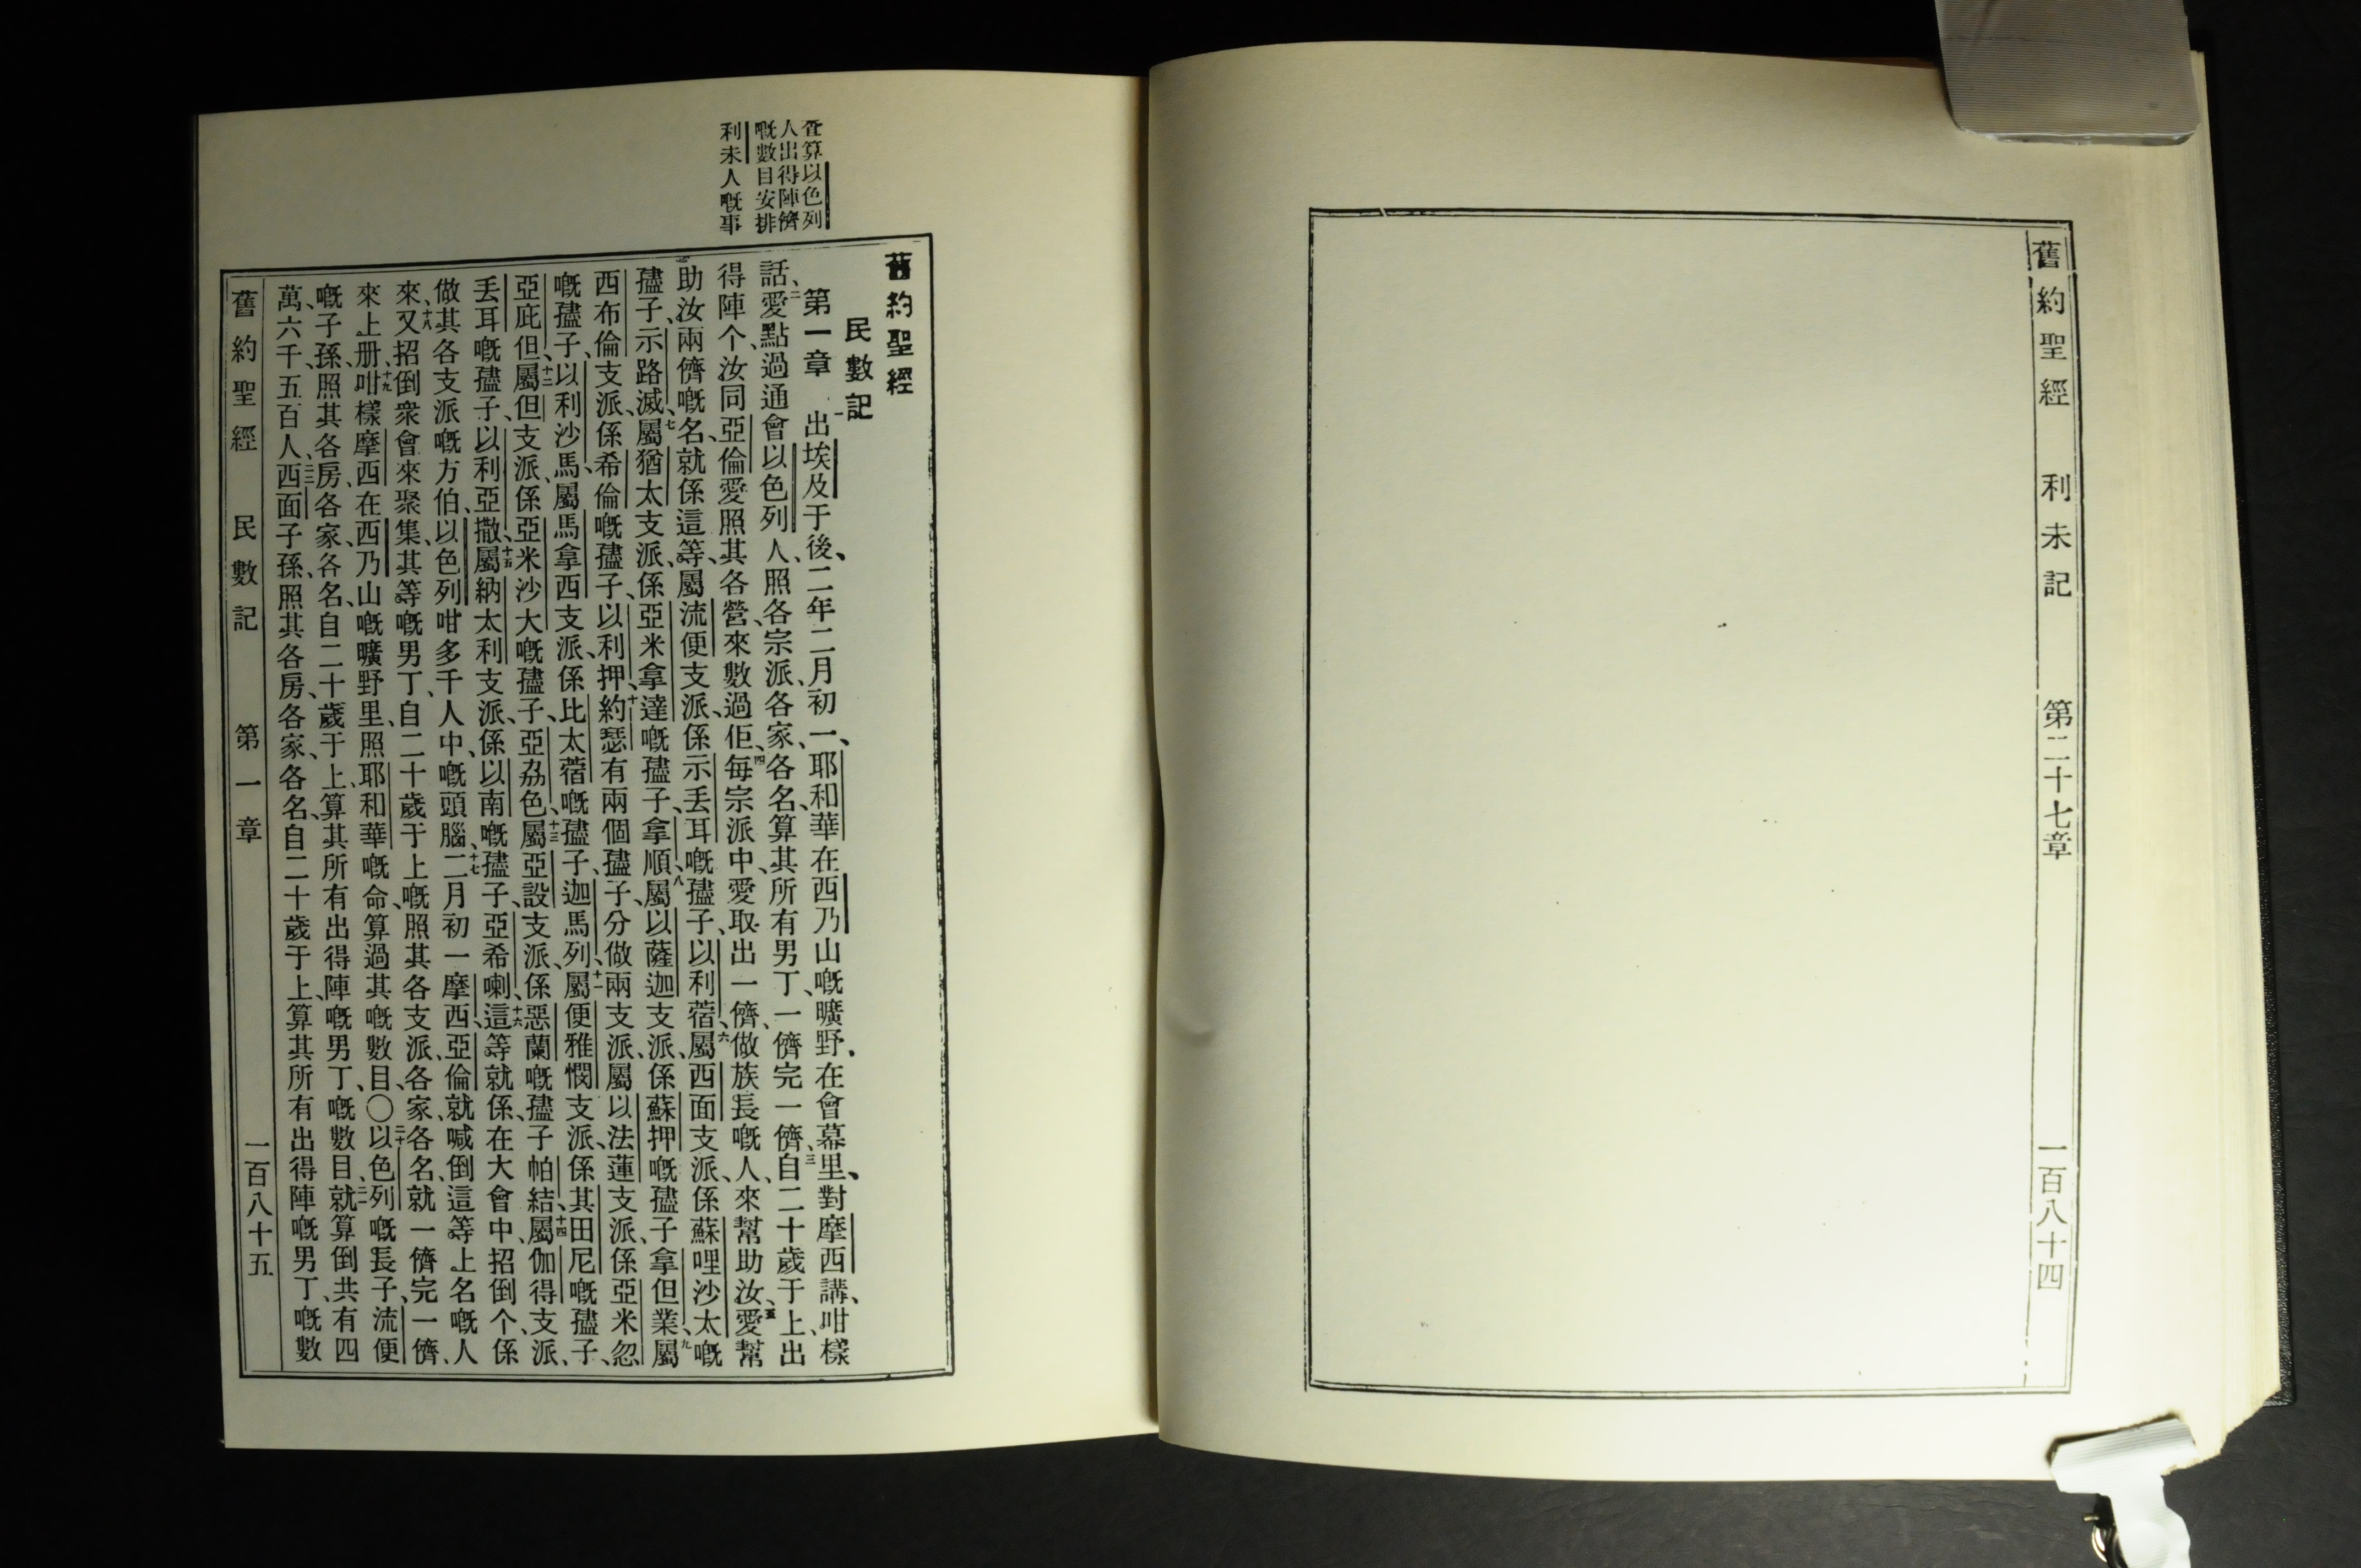 舊約聖經　利未記　第二十七章　一百八十四
查算以色列
人出得陣儕
嘅數目安排
利未人嘅事
舊約聖經
民數記
第一章　一出埃及于後、二年二月初一、耶和華在西乃山嘅曠野、在會幕里、對摩西講、咁樣
話、二愛點過通會以色列人、照各宗派、各家、各名、算其所有男丁、一儕完一儕、三自二十歲于上、出
得陣个、汝同亞倫愛照其各營、來數過佢、四每宗派中、愛取出一儕、做族長嘅人、來幫助汝、五愛幫
助汝兩儕嘅名、就係這等、屬流便支派、係示丢耳嘅孻子、以利蓿、六屬西面支派、係蘇哩沙太嘅
孻子、示路滅、七屬猶太支派、係亞米拿達嘅孻子、拿順、八屬以薩迦支派、係蘇押嘅孻子拿但業、九屬
西布倫支派、係希倫嘅孻子、以利押、十約瑟有兩個孻子、分做兩支派、屬以法蓮支派、係亞米忽
嘅孻子、以利沙馬、屬馬拿西支派、係比太蓿嘅孻子、迦馬列、十一屬便雅憫支派、係其田尼嘅孻子、
亞庇但、十二屬但支派、係亞米沙大嘅孻子、亞荔色、十三屬亞設支派、係惡蘭嘅孻子帕結、十四屬伽得支派、
丢耳嘅孻子、以利亞撒、十五屬納太利支派、係以南嘅孻子、亞希喇、十六這等就係、在大會中、招倒个、係
做其各支派嘅方伯、以色列咁多千人中、嘅頭腦、十七二月初一摩西、亞倫就喊倒這等上名嘅人
來、十八又招倒衆會來聚集、其等嘅男丁、自二十歲于上嘅、照其各支派、各家、各名、就一儕完一儕、
來上册、十九咁樣摩西在西乃山嘅曠野里、照耶和華嘅命、算過其嘅數目、〇二十以色列嘅長子、流便
嘅子孫、照其各房、各家、各名、自二十歲于上、算其所有出得陣嘅男丁、嘅數目、二一就算倒共有四
萬、六千、五百人、二二西面子孫、照其各房、各家、各名、自二十歲于上、算其所有出得陣嘅男丁、嘅數
舊約聖經　民數記　第一章　一百八十五